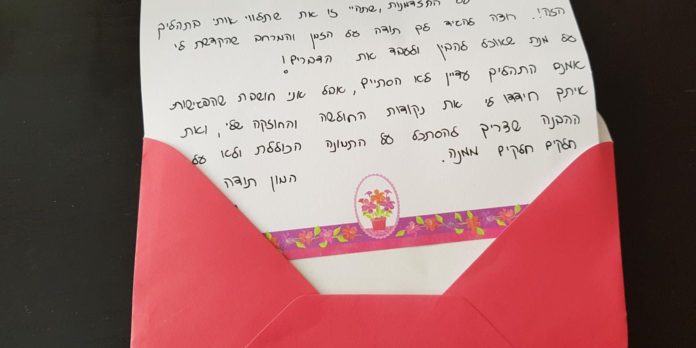 הצדמנות, שתה" זו את שתלווי אותי בתהליך
הזה!. רוצה להגיד לך תודה על הזמן והמרחב שהקדשת לי
על מנת שאוכל להבין ולעבד את הדברים!
אמנם התהליך עדיין לא הסתיים, אבל אני חושבת שהפגישות
איתך חידדו לי את נקודות החולשה והחוזקה שלי, ואת
ההבנה שצריך להסתכל על התמונה הכוללת ולא על
חלקים חלקים ממנה.
המון תודה